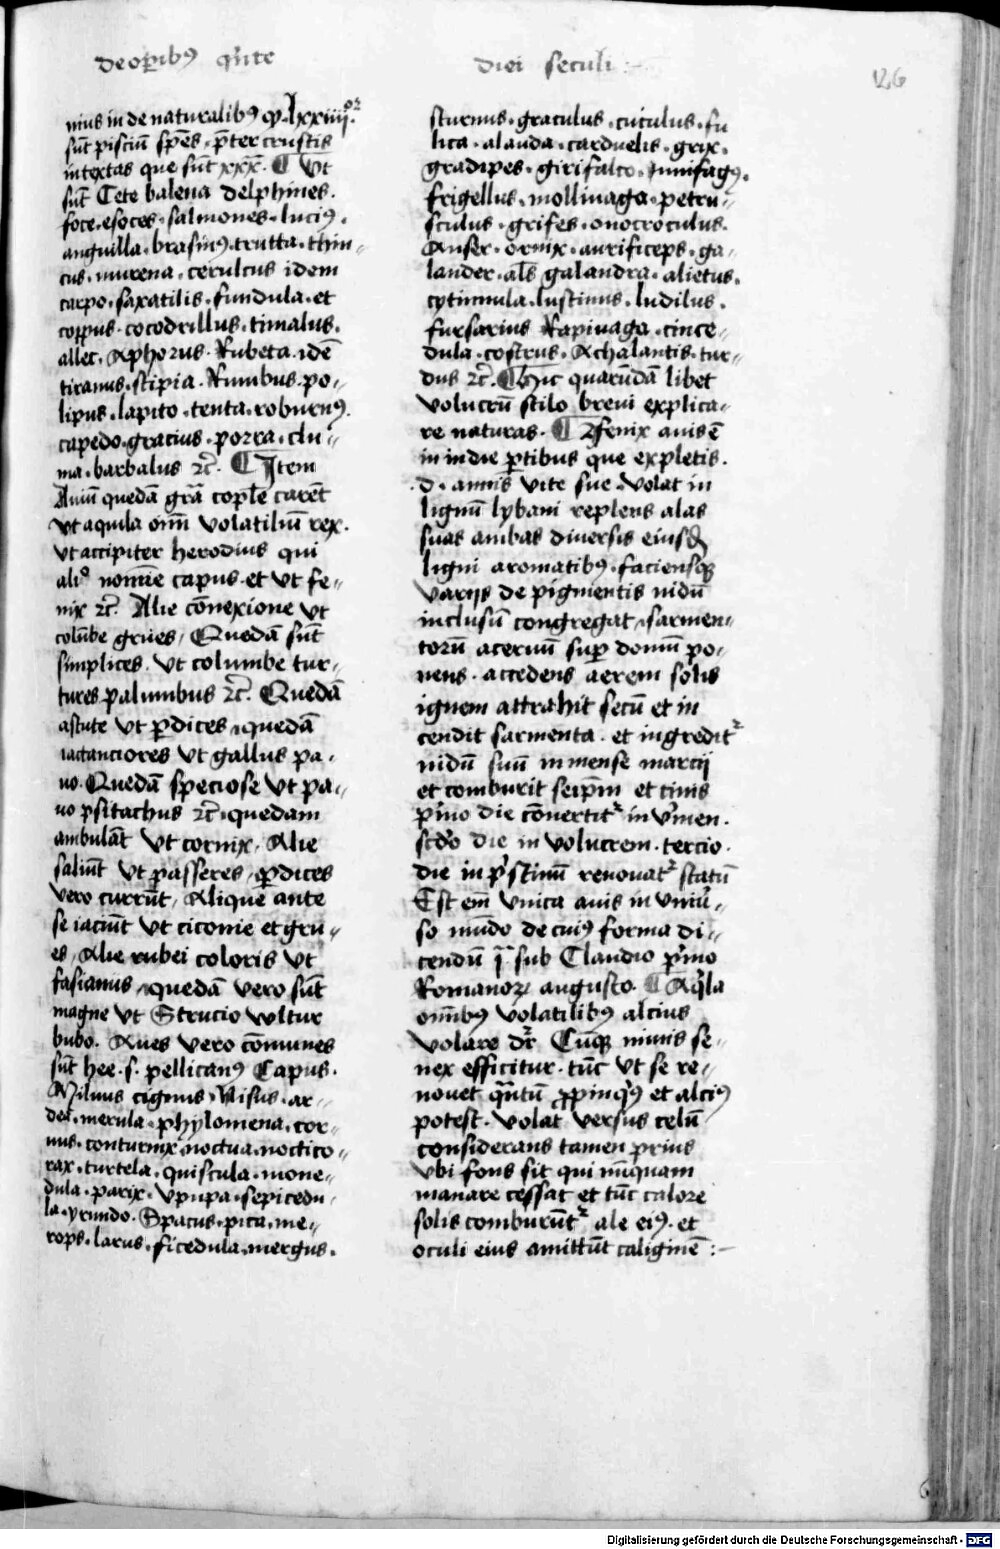 de oꝑibꝰ qͥnte diei seculi :~
126
nius in de naturalibꝰ ꝙ lxxiiii
sūt pisciū sp̄es p̄ter crustis
intextas que sūt xxx. ¶ Ut
sūt Cete balena delphines.
foce. esoces. salmones. luciꝰ.
anguilla. brasinꝰ. trutta. thin-
cus. murena. cerulcus idem
carpo. saxatilis. fundula. et
coꝛpus. cocodrillus. timalus.
allec. Aphorus. Rubeta. idē
tiranus. stipia. Rumbus. po-
lipus. lapito. tenta. roburnꝰ.
capedo. gracius. porra. clu-
ma. barbalus ⁊c̄. ¶ Item
Auiū quedā gr̄a cople carēt
ut aquila oīm volatiliū rex.
ut accipiter herodius qui
alio nomīe capus. et ut fe-
nix ⁊c̄. Alie cōnexione ut
colūbe grues, Quedā sūt
simplices. ut columbe tur-
tures palumbus ⁊c̄. Quedā
astute ut ꝑdices, quedā
iactanciores ut gallus pa-
uo. Quedā speciose ut pa-
uo psitachus ⁊c̄. quedam
ambulāt ut cornix, Alie
saliūt ut passeres, ꝑdices
vero currūt, Alique ante
se iaciūt ut ciconie et gru-
es, Alie rubei coloris ut
fasianus, quedā vero sūt
magne ut Strucio vultur
bubo. Aues vero cōmunes
sūt hee. s. pellicanꝰ Capus.
Miluus cignus, Nisus. ar-
dea. merula. phylomena. cor-
nus. conturnix. noctua. noctico-
rax. turtela. quiscula. mone-
dula. parix. upupa. sepicedu-
la. yrundo. Spacus. pica. me-
rops. larus. ficedula. mergus.
sturnus. graculus. cuculus. fu
lica. alauda. carduelis. grix.
gradipes. girifalco. Junifagꝰ.
frigellus. mollinaga. petru-
sculus. grifes. onocroculus.
Anser. ornix. aurificeps. ga-
lander. al̄s galandra. alietus.
cytinnula. lustinus. ludilus.
fursarius Rapinaga. cince-
dula. costrus. Achalantis. tur-
dus ⁊c̄. ¶ Hic quarūdā libet
volucrū stilo breui explica-
re naturas. ¶ Fenix auis ē
in indie ꝑtibus que expletis.
.d. annis vite sue. volat in
lignū lybani replens alas
suas ambas diuersis eiusd̄
ligni aromatibꝰ. faciensqꝫ
varijs de pigmentis nidū
inclusū congregat, sarmen-
torū aceruū suꝑ domū po-
nens. accedens aerem solis
ignem attrahit secū et in
cendit sarmenta. et ingreditᷣ
nidū suū in mense marcii
et comburit seip̄m et cinis
p̍mo die cōuertitᷣ in v̍men.
scd̄o die in volucrem. tercio.
die in p̍stinū renouatᷣ statū
Est em̄ vnica auis in vniu̍-
so mūdo de cuiꝰ forma di-
cendū sub Claudio p̍mo
Romanoꝝ augusto. ¶ Aq̍la
om̄ibꝰ volatilibꝰ alcius
volare dr̄ Cūqꝫ nimis se-
nex efficitur. tūc ut se re-
nouet quātū ꝓpinqꝰ et alciꝰ
potest. volat versus celū
considerans tamen prius
ubi fons sit qui nūquam
manare cessat et tūc calore
solis comburūtᷣ ale eiꝰ. et
oculi eius amittūt caliginē :~
Digitalisierung gefördert durch die Deutsche Forschungsgemeinschaft - DFG